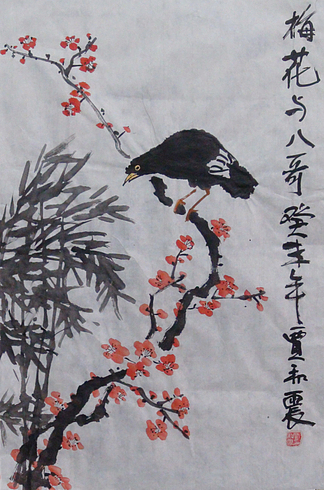 梅花与八哥癸未年賈和震